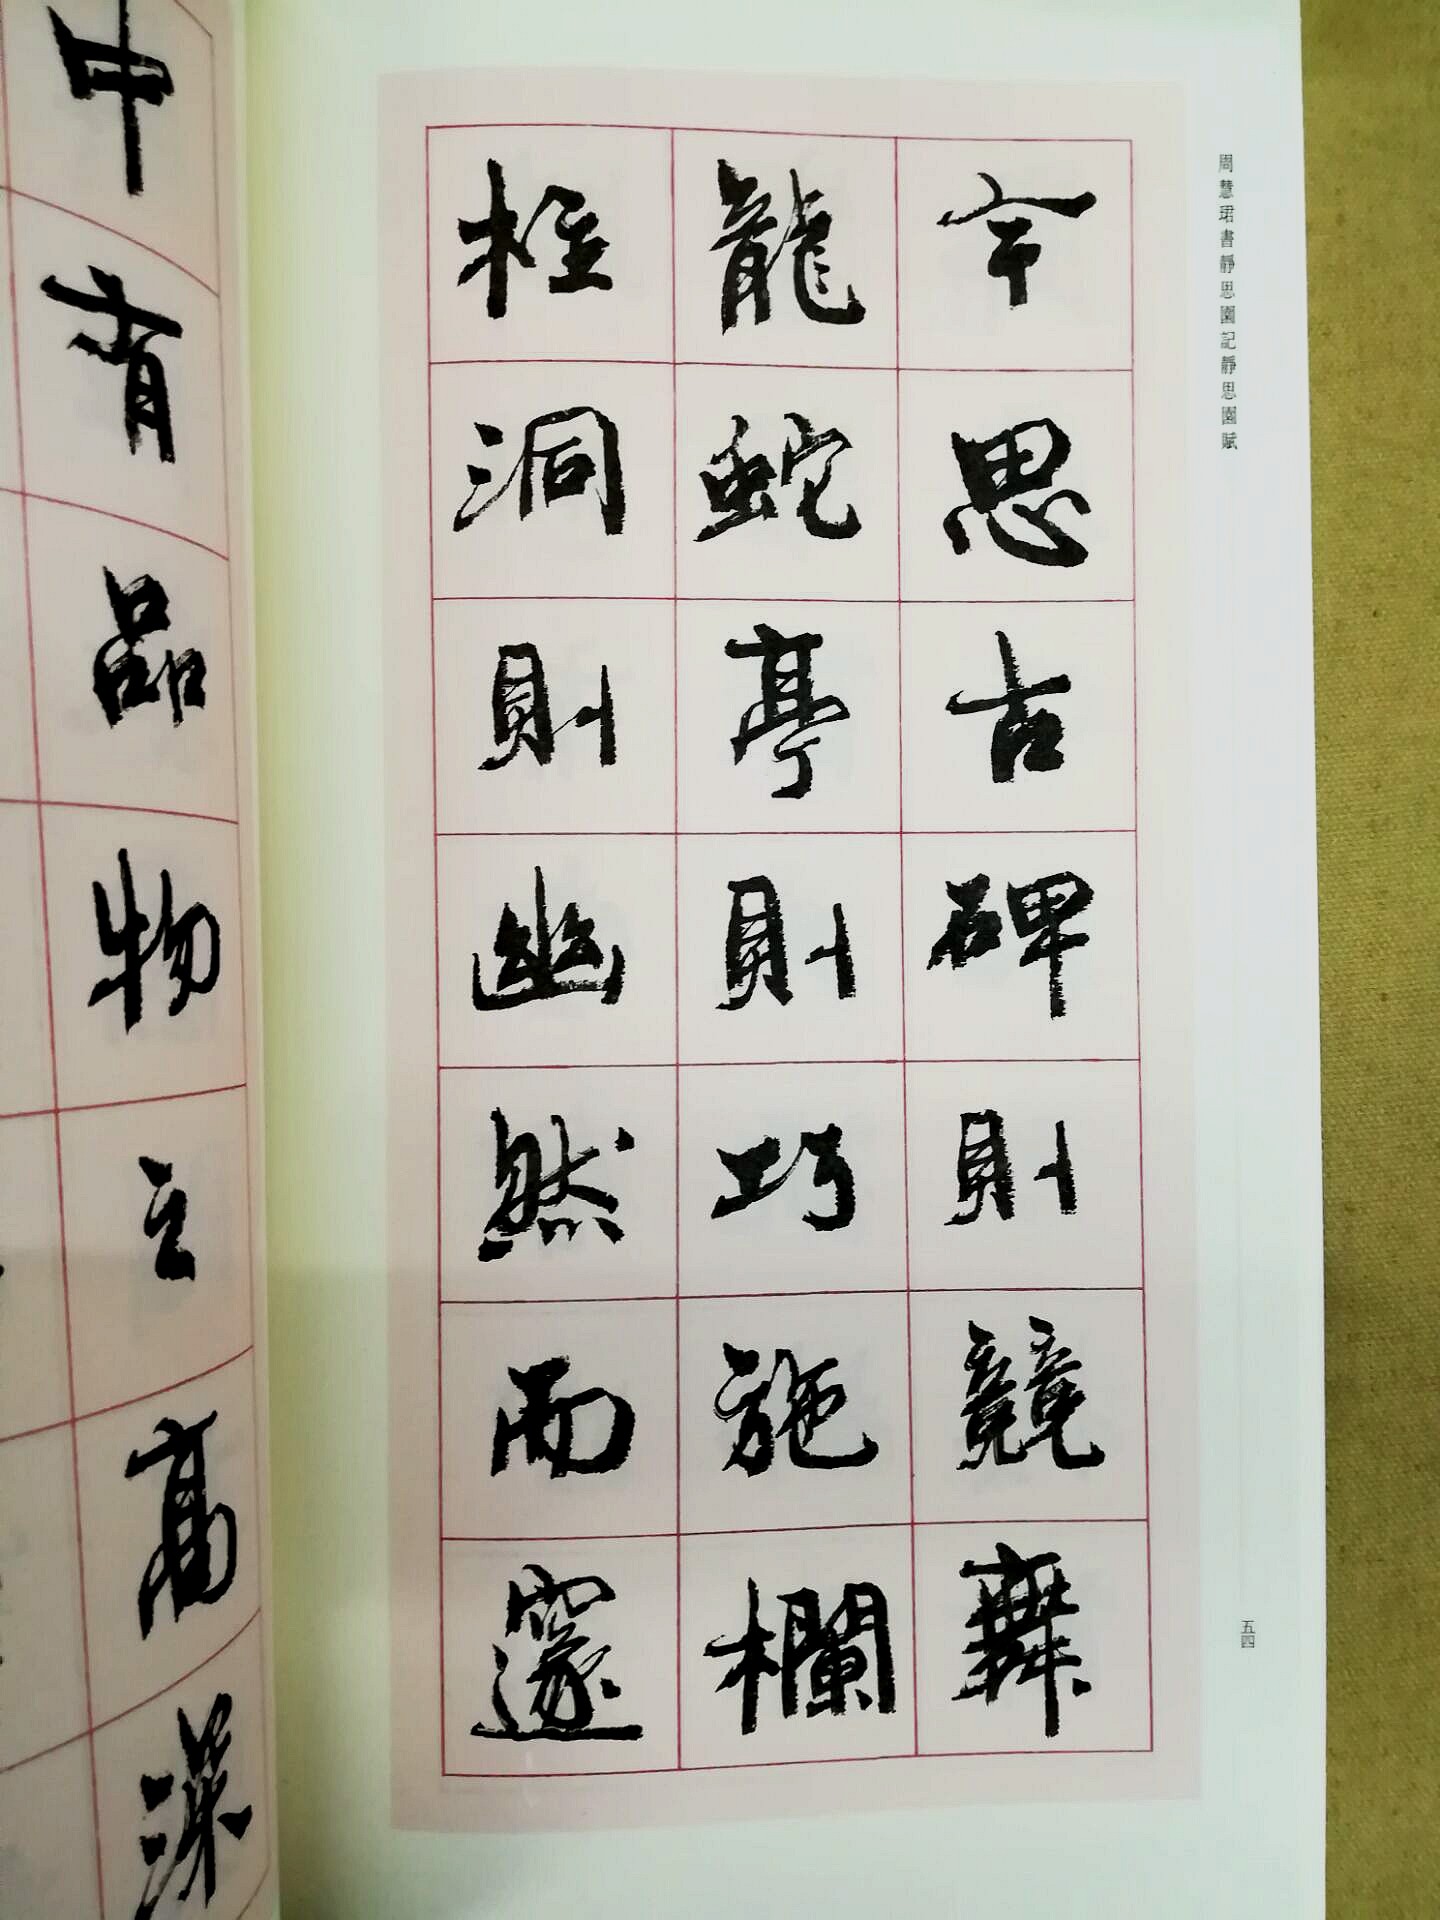 周慧珺書靜思園記靜思園賦
五四
思古碑則競舞
龍蛇亭則巧施欄
柱洞則幽然而邃
中有品物高深